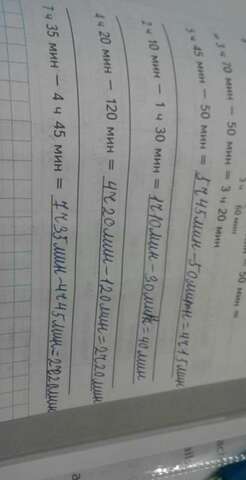 60 мин
50 мин =
3 ч 70 мин − 50 мин = 3 ч 20 мин
5 ч 45 мин − 50 мин = 5ч45мин-50мин=4ч15мин
2 ч 10 мин − 1 ч 30 мин = 1ч10мин-30мин=40мин
4 ч 20 мин − 120 мин = 4ч20мин-120мин=2ч20мин
7 ч 35 мин − 4 ч 45 мин = 7ч35мин-4ч45мин=2ч20мин